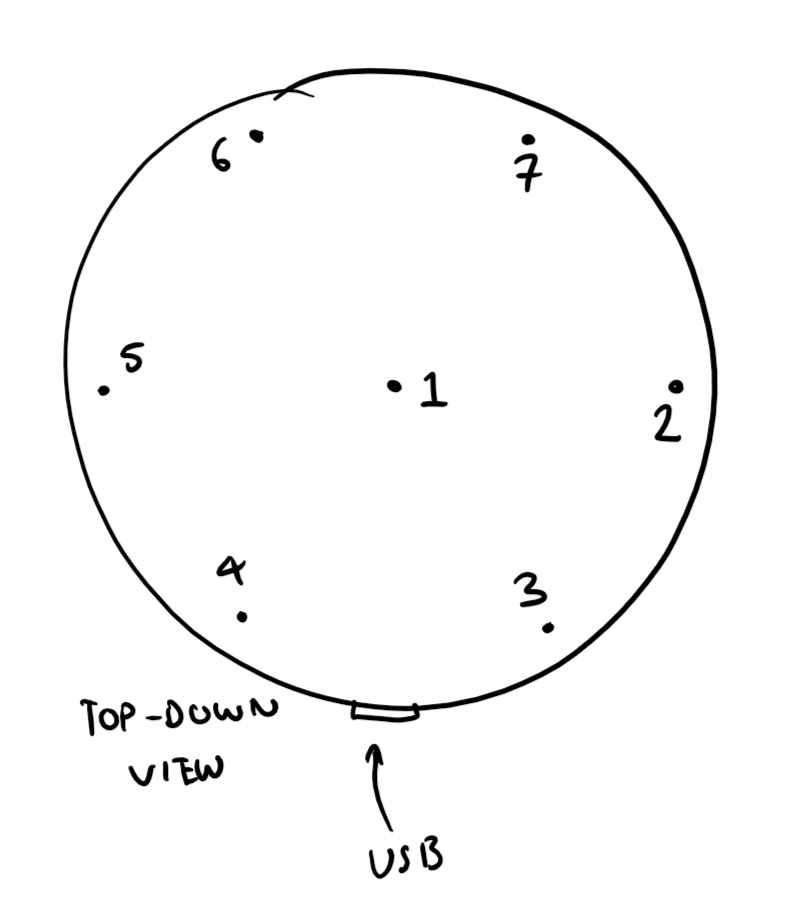 6
7
5
1
2
4
3
TOP-DOWN
VIEW
USB